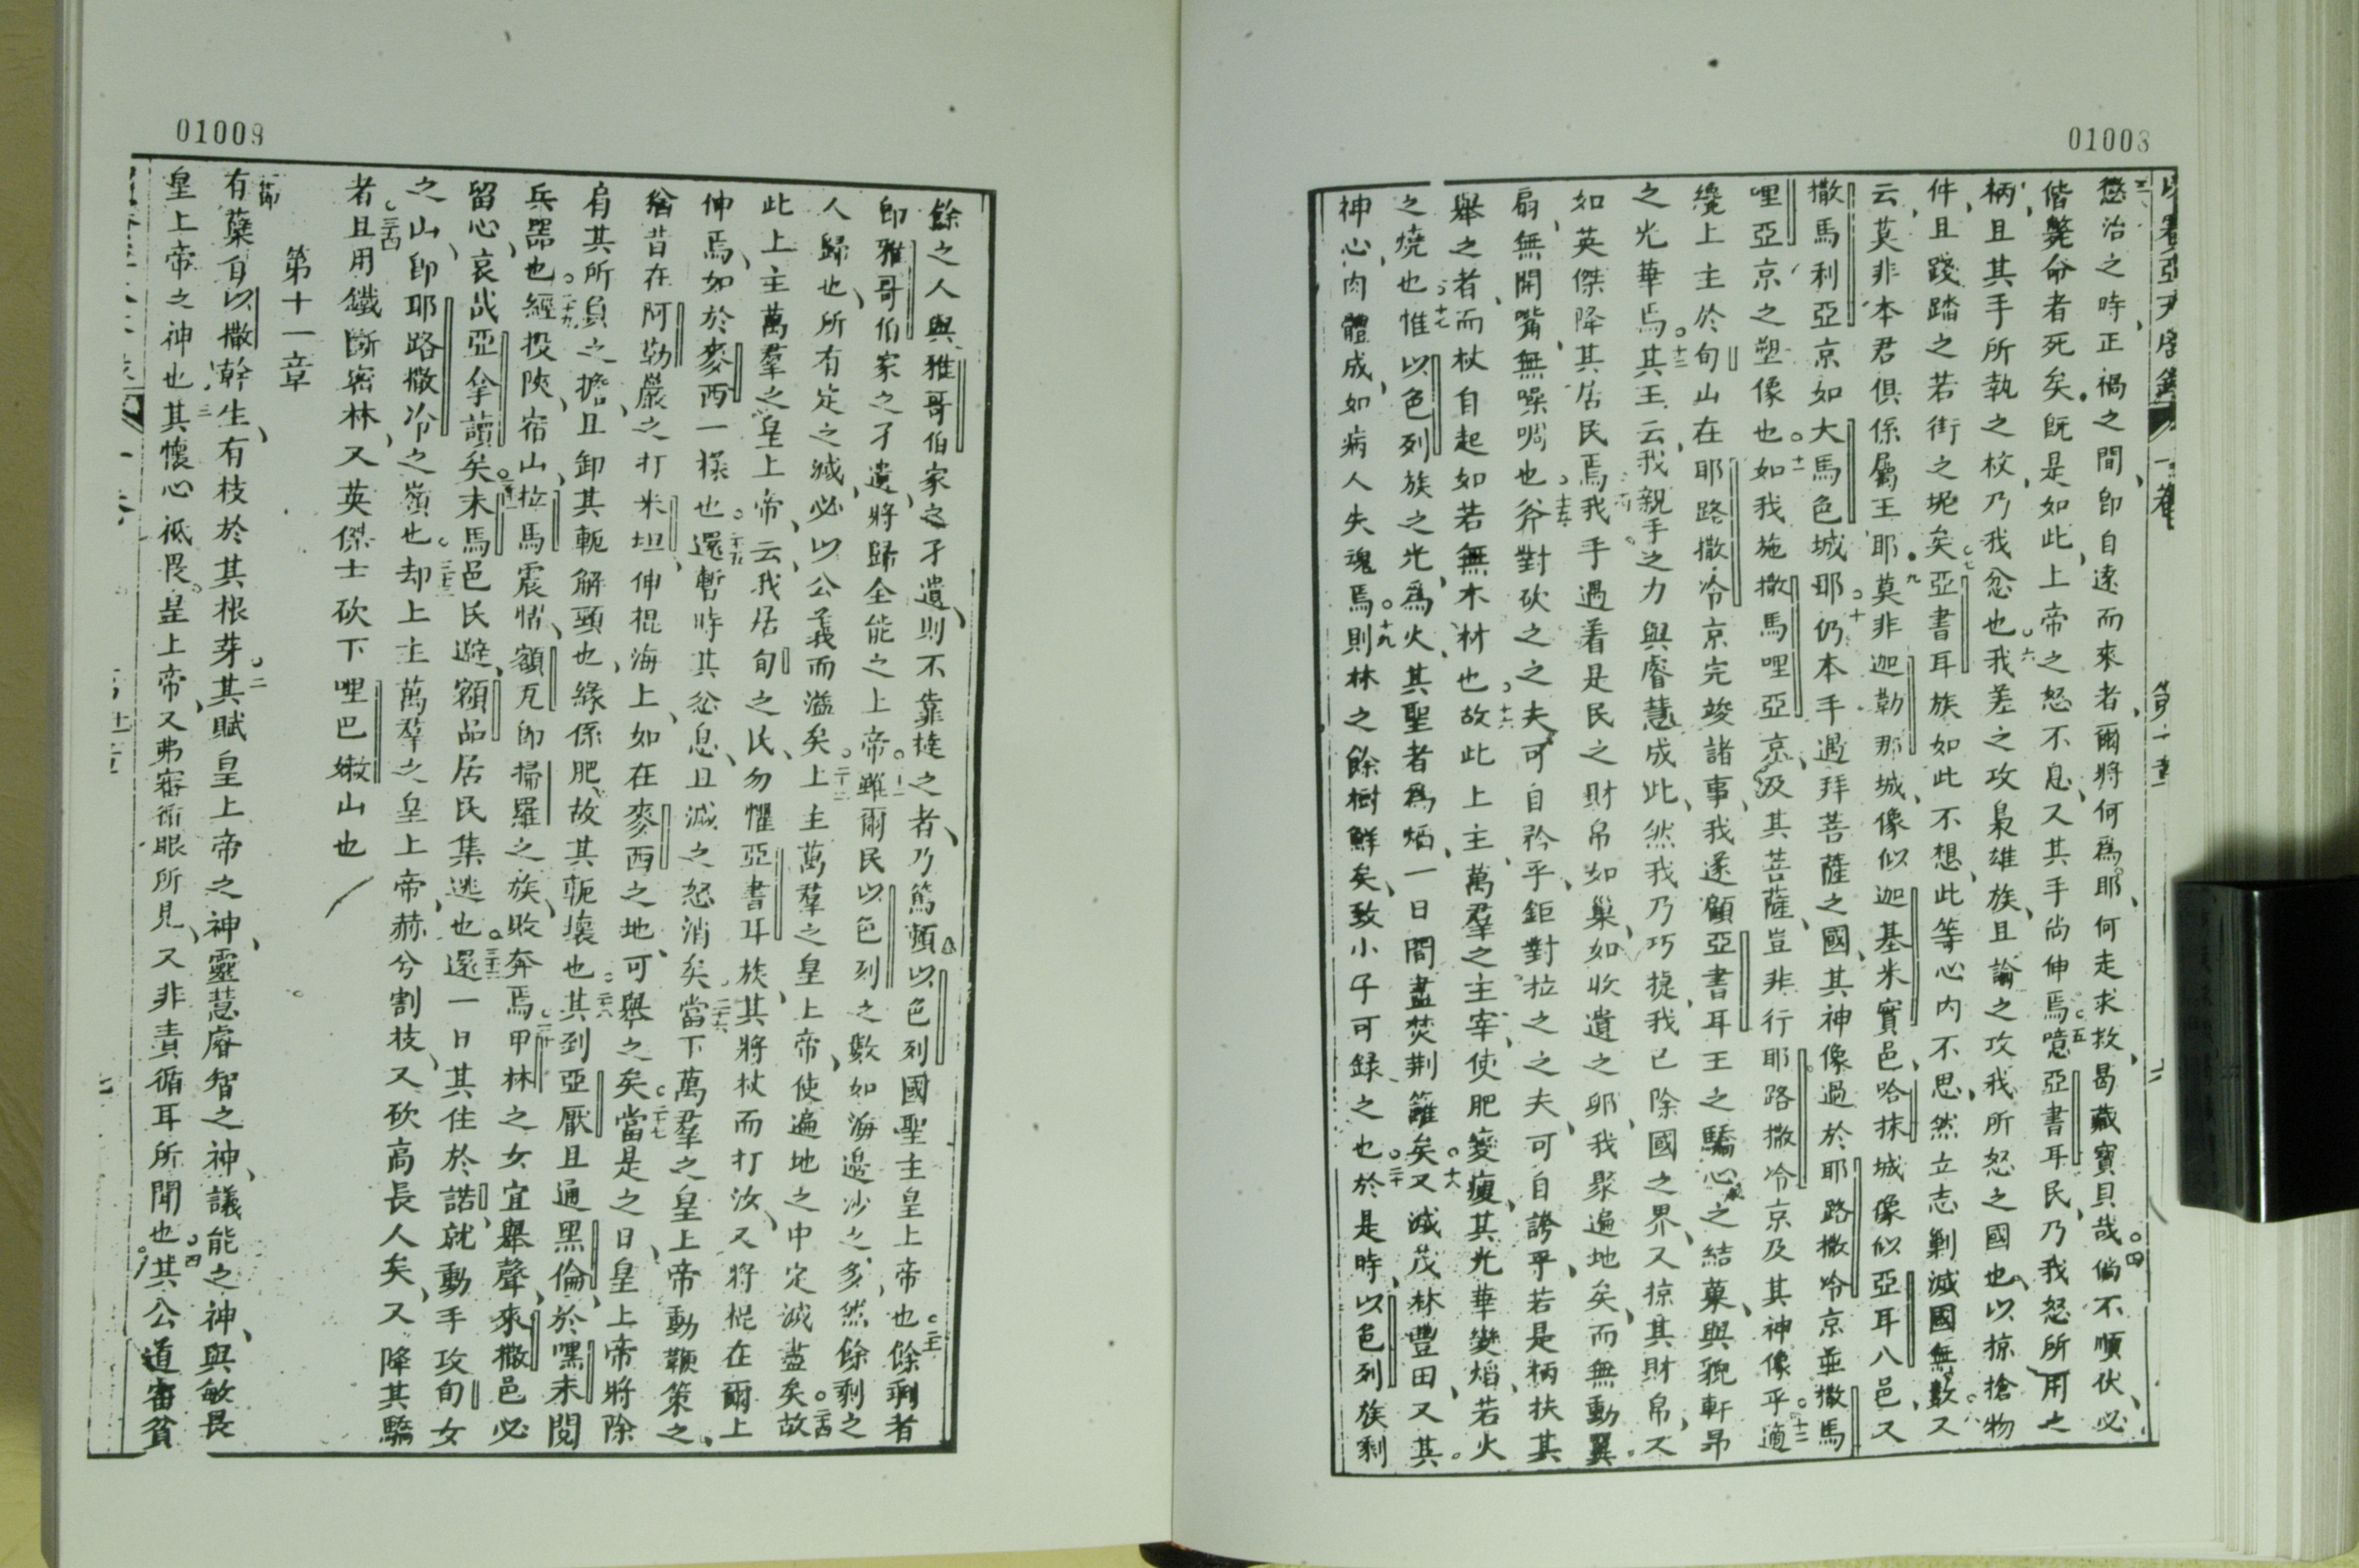 01008
懲治之時、正禍之間、即自遠而來者、爾將何爲耶、何走求救、曷藏寶貝哉。四倘不順伏、必
偕斃命者死矣。既是如此、上帝之怒不息、又其手尚伸焉。五噫亞書耳民、乃我怒所用之
柄、且其手所執之杖、乃我忿也。六我差之攻梟雄族、且諭之攻我所怒之國也、以掠搶物
件、且踐踏之若街之坭矣。七亞書耳族如此不想、此等心内不思、然立志剿滅國無數。又
云莫非本君俱係屬王耶。九莫非迦勒那城、像似迦基米實邑、哈抹城像似亞耳八邑、又
撒馬利亞京如大馬色城耶。十仍本手遇拜菩薩之國、其神像過於耶路撒冷京並撒馬
哩亞京之塑像也。十一如我施撒馬哩亞京、及其菩薩、豈非行耶路撒冷京及其神像乎。十二適
纔上主於旬山在耶路撒冷京完竣諸事、我遂顧亞書耳王之驕心之結菓、與貌軒昂
之光華焉。十三其王云、我親手之力與睿慧成此、然我乃巧捷、我已除國之界、又掠其財帛、又
如英傑降其居民焉。我手遇着是民之財帛如巢、如收遺之卵、我聚遍地矣、而無動翼
扇、無開嘴、無噪啁也。十五斧對砍之之夫、可自矜乎、鉅對拉之之夫、可自誇乎、若是柄扶其
舉之者、而杖自起如若無木材也。十六故此上主、萬羣之主宰、使肥變瘦、其光華變熖若火
之燒也。十七惟以色列族之光、爲火、其聖者爲熖、一日間盡焚荆籬矣。十八又滅茂林豐田、又其
神心、肉體成、如病人失魂焉。十九則林之餘樹鮮矣、致小子可録之也。二十於是時、以色列族剩
01009
餘之人與雅哥伯家之孑遺、則不靠撻之者、乃篤頼以色列國聖主皇上帝也。二十一餘剩者
即雅哥伯家之孑遺、將歸全能之上帝。雖爾民以色列之數如海邊沙之多、然餘剩之
人歸也、所有定之滅、必以公義而溢矣。上主萬羣之皇上帝、使遍地之中定滅盡矣。二十四故
此上主萬羣之皇上帝、云、我居旬之民、勿懼亞書耳族、其將杖而打汝、又將棍在爾上
伸焉、如於麥西一樣也。二十五還暫時其忿息、且滅之怒消矣。二十六當下萬羣之皇上帝動鞭策之、
猶昔在阿勒巖之打米坦、伸棍海上、如在麥西之地、可舉之矣。二十七當是之日、皇上帝將除
肩其所負之擔、且卸其軛解頸也、緣係肥、故其軛壞也。二十八其到亞厭且通黑倫、於嘿末閱
兵噐也。二十九經投陜、宿山、拉馬震慴、額瓦即掃羅之族、敗奔焉。三十甲林之女宜舉聲、來撒邑必
留心、哀哉亞拿讀矣。三十一末馬邑民避、額品居民集逃也。三十二還一日其住於諾、就動手攻旬女
之山、即耶路撒冷之嶺也。三十三却上主萬羣之皇上帝、赫兮割枝、又砍高長人矣、又降其驕
者。三十四且用鐵斷密林、又英傑士砍下哩巴嫩山也
第十一章
節有蘖自以撒幹生、有枝於其根芽。二其賦皇上帝之神、靈慧睿智之神、議能之神、與敏畏
皇上帝之神也。三其懷心祗畏皇上帝、又弗審循眼所見、又非責循耳所聞也。四其公道審貧